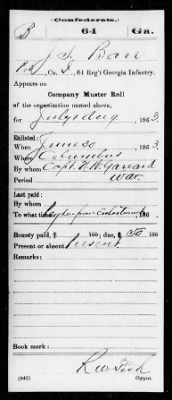 Confederate.
B 64 Ga.
J. T. Barr
Co. 64 Reg't Georgia Infantry.
Appears on
Company Muster Roll
of the organization named above,
for July & Aug, 1863.
Enlisted:
When June 30, 1863.
Where Columbus
By whom Capt.
Period War
Last paid:
By whom
To what time from Enlistment, 186 .
Bounty paid $ 100; due, $ 50 100
Present or absent Present
Remarks:
Book mark:
R W
(642) Copyist.